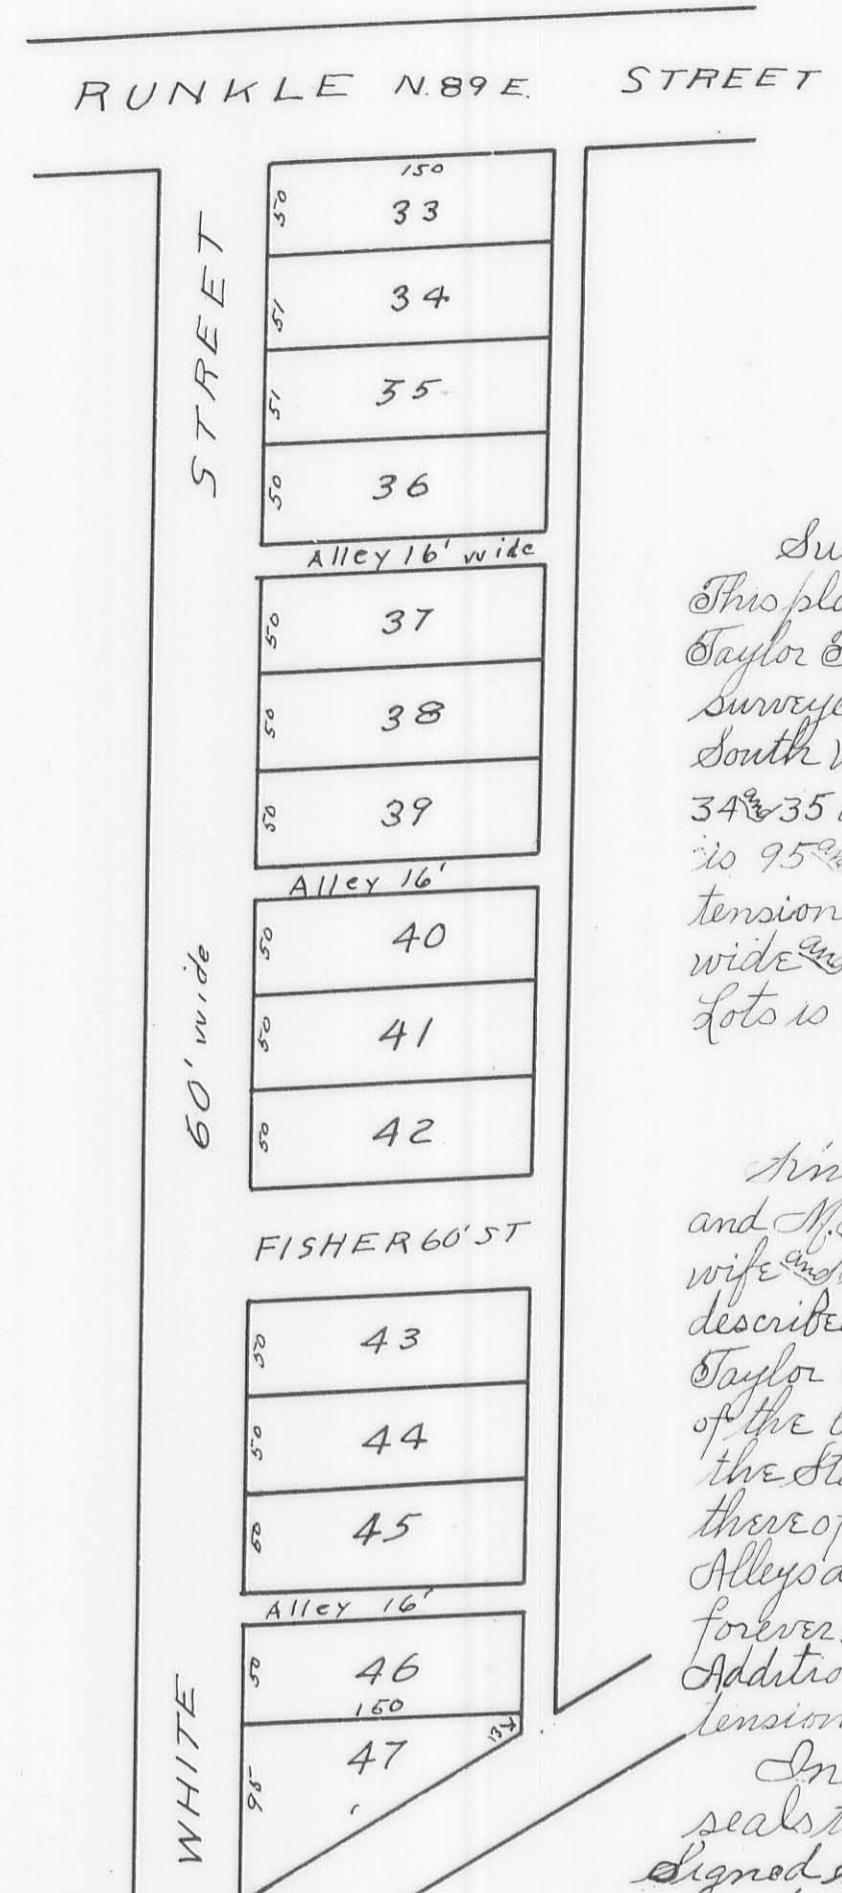 RUNKLE N.89E. STREET
150
50 33
51 34
51 35
50 36
Alley 16' wide
50 37
50 38
50 39
Alley 16'
50 40
50 41
50 42
FISHER 60' ST
50 43
50 44
50 45
Alley 16'
50 46
150
13
95 47
WHITE 60' wide STREET
Su
This pla
Taylor
surveye
South
34 and 35
is 95 an
tension
wide and
Lots is
and M.
wife and
describe
Taylor
of the
the Sta
thereof
Alleys a
forever.
Additio
tension
In
seals t
Signed